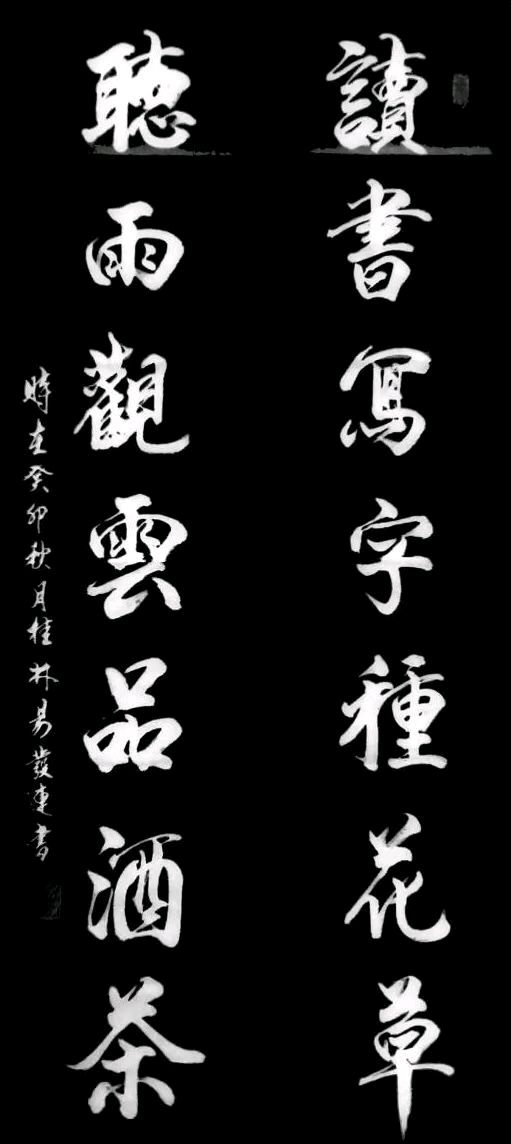 讀書寫字種花草
聽雨觀雲品酒茶
時在癸卯秋月桂林易發連書